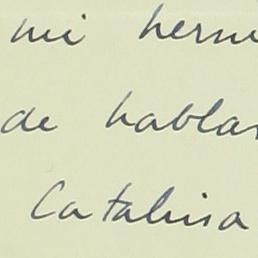 mi herm
de hablar
Catalina